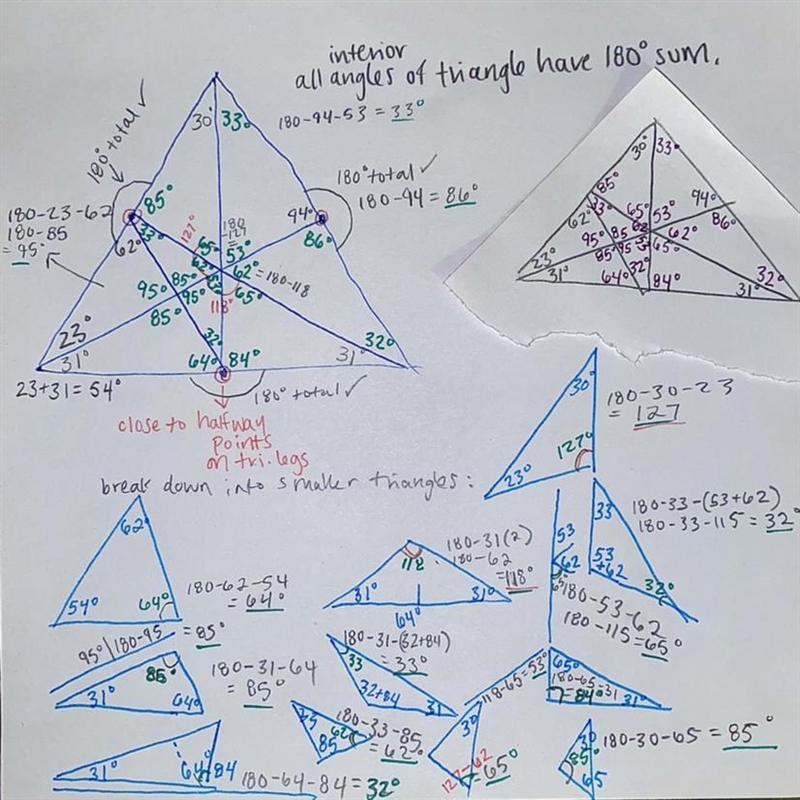 interior
all angles of triangle have 180° sum.
180-94-53 = 33°
180° total ✓
30° 33°
180° total ✓
180-94 = 86°
180-23-62
180-85
= 95°
85°
94°
86°
62°
33°
127°
65°
180
-127
=
53°
62° = 180-118
62
53
65°
118°
95°
85°
95°
85°
32°
23°
31°
64° 84°
31°
32°
23+31 = 54°
180° total ✓
close to halfway
points
on tri. legs
30° 33°
85°
62°
33°
65°
53°
94°
86°
95 85
62
62°
85 95
53
65°
23°
31°
64° 32°
84°
31°
32°
break down into smaller triangles:
30°
127°
23°
180-30-23
= 127
62°
54°
64°
180-62-54
= 64°
118
31°
31°
64°
180-31(2)
180-62
= 118°
53
62
65
180-53-62
180-115 = 65°
33
53
+62
32°
180-33-(53+62)
180-33-115 = 32°
95° 180-95 = 85°
85°
31°
64°
180-31-64
= 85°
33
32+84
31
180-31-(32+84)
= 33°
118-65 = 53°
65°
180-65-31
= 84°
31°
31°
64° 84
180-64-84 = 32°
33
85
62
180-33-85
= 62°
30
127-62
= 65°
30
85°
65
180-30-65 = 85°